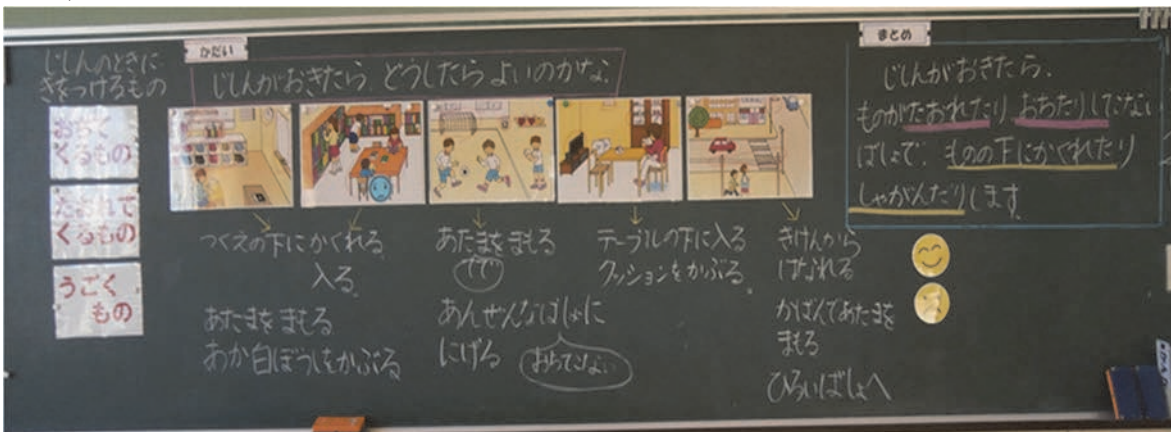 じしんのときに
きをつけるもの
おちて
くるもの
たおれて
くるもの
うごく
もの
かだい
じしんがおきたら、どうしたらよいのかな。
つくえの下にかくれる
入る。
あたまをまもる
あか白ぼうしをかぶる
あたまをまもる
あんぜんなばしょに
にげる
おちてこない
テーブルの下に入る
クッションをかぶる。
きけんから
はなれる
かばんであたまを
まもる
ひろいばしょへ
まとめ
じしんがおきたら、
ものがたおれたり、おちたりしてこない
ばしょで、ものの下にかくれたり
しゃがんだりします。